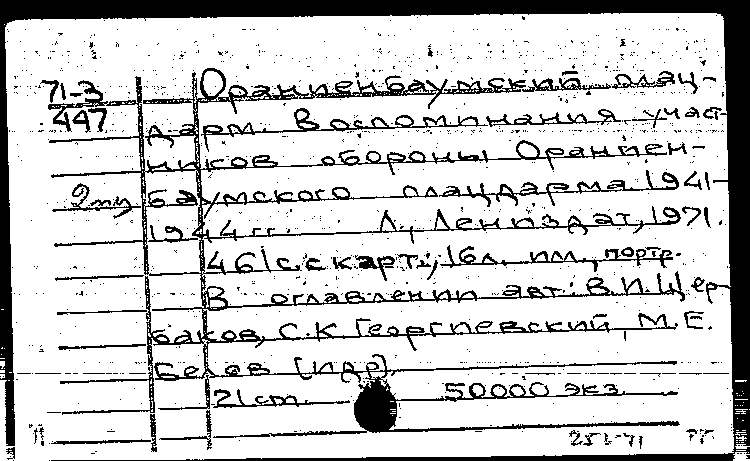 71-3 Ораниенбаумский плац-
447 дарм. Воспоминания участ-
ников обороны Ораниен-
баумского плацдарма 1941-
1944 гг. Л., Лениздат, 1971.
461 с. с карт.; 16 л. илл., портр.
В оглавлении авт: В.И. Щер-
баков, С.К. Георгиевский, М.Е.
Белов [и др].
21 cm. 50000 экз.